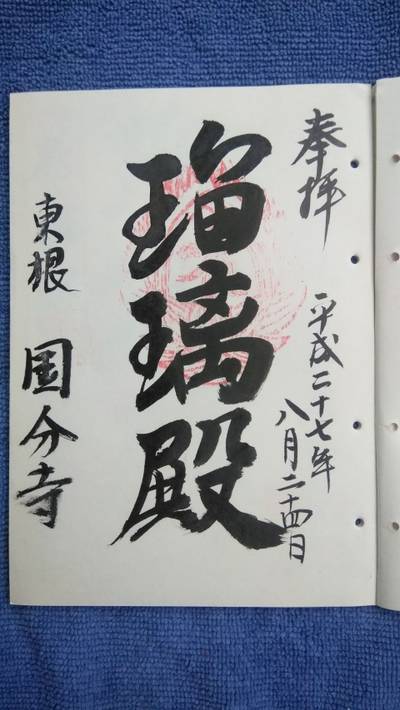 奉拝
平成二十七年
八月二十四日
瑠璃殿
東根 国分寺